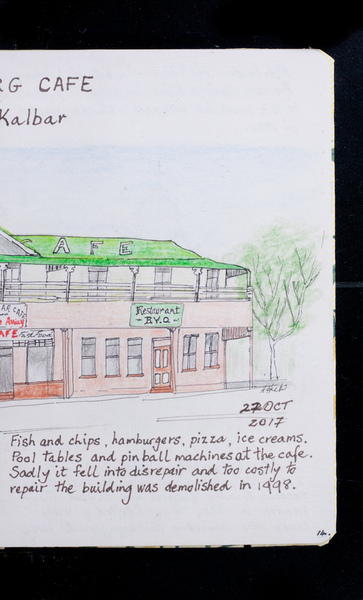 RG CAFE
Kalbar
CAFE
AR CAFE
Restaurant
B.Y.O
Away
AFE
27 OCT
2017
Fish and chips, hamburgers, pizza, ice creams.
Pool tables and pin ball machines at the cafe.
Sadly it fell into disrepair and too costly to
repair the building was demolished in 1998.
14.